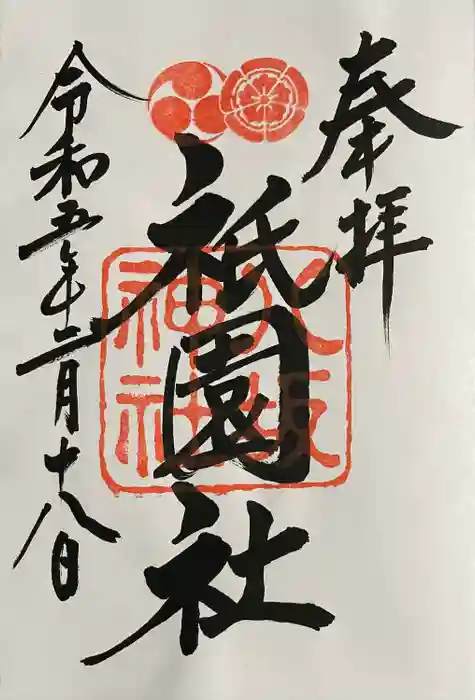 奉拝
祇園社
八坂神社
令和五年二月十八日